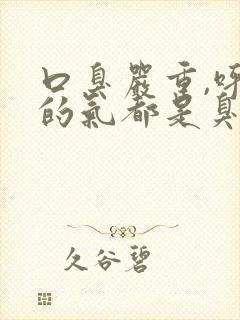 口臭嚴重,呼
的氣都是臭
久谷碧